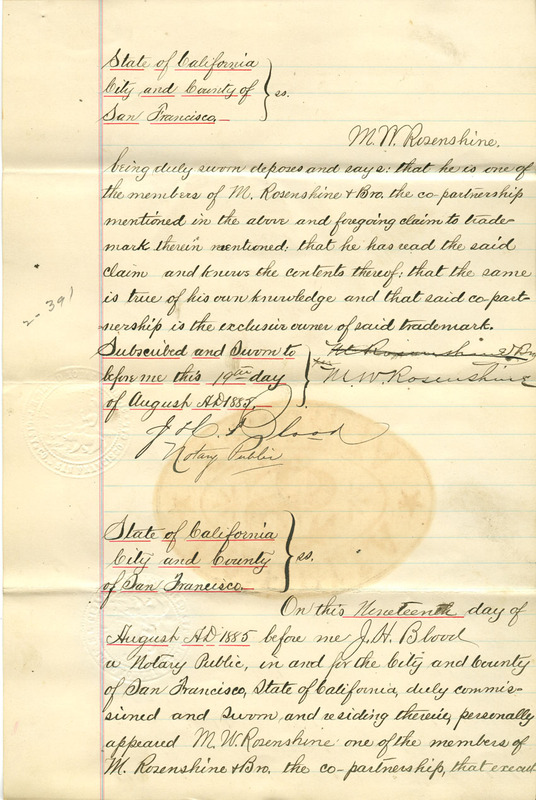 State of California
City and County of } ss.
San Francisco,
M. W. Rosenshine.
being duly sworn deposes and says: that he is one of
the members of M. Rosenshine & Bro. the co-partnership
mentioned in the above and foregoing claim to trade-
mark therein mentioned; that he has read the said
claim and knows the contents thereof; that the same
is true of his own knowledge and that said co-part-
nership is the exclusive owner of said trademark.
2-391
Subscribed and Sworn to
before me this 19th day
of August A.D. 1885.
M. Rosenshine & Bro
per
M. W. Rosenshine
J. H. Blood
Notary Public
State of California
City and County } ss.
of San Francisco.
On this Nineteenth day of
August A.D 1885 before me J. H. Blood
a Notary Public, in and for the City and County
of San Francisco, State of California, duly commis-
sioned and sworn, and residing therein, personally
appeared M. W. Rosenshine one of the members of
M. Rosenshine & Bro. the co-partnership, that execut